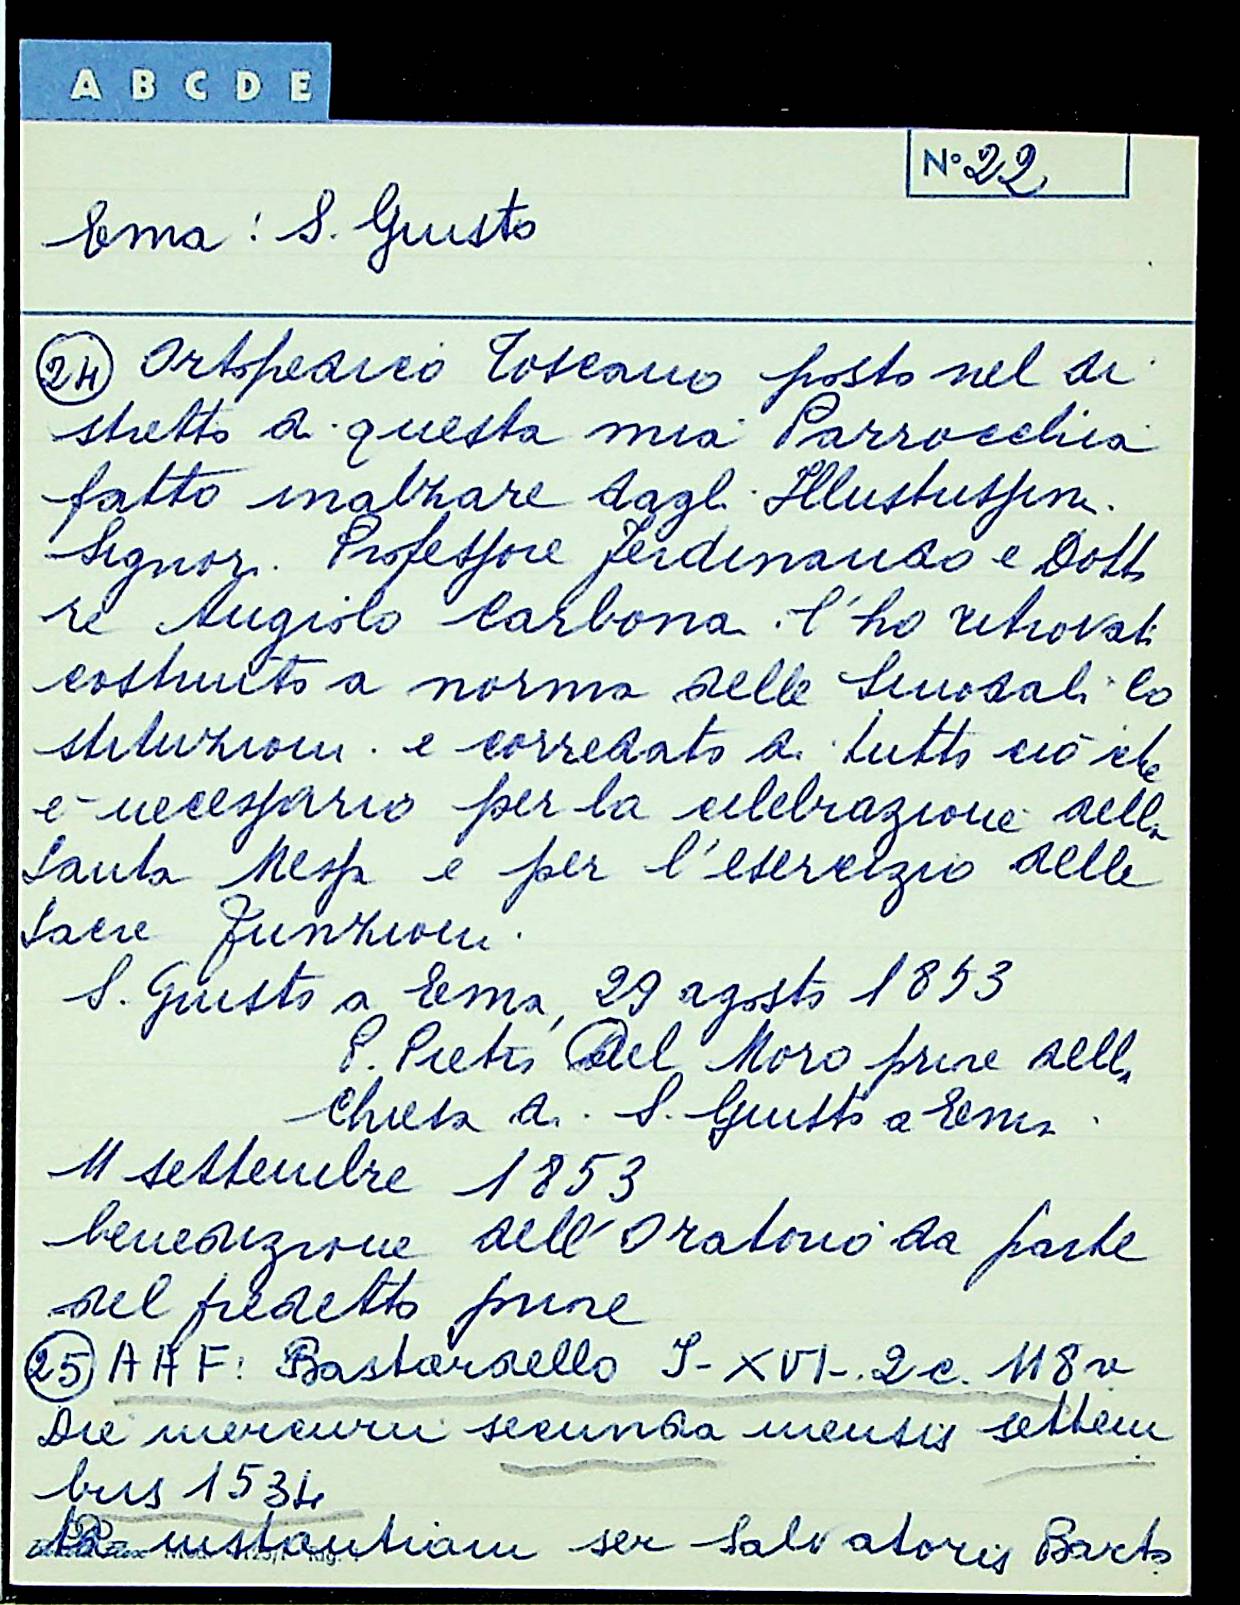 A B C D E
N° 22
Ema : S. Giusto
24 Ortopedico Toscano posto nel di
stretto di questa mia Parrocchia
fatto inalzare dagli Illustrissimi
Signori Professore Ferdinando e Dotto
re Angiolo Carbonai l'ho ritrovato
costruito a norma delle Sinodali Co
stituzioni e corredato di tutto ciò che
è necessario per la celebrazione della
Santa Messa e per l'esercizio delle
Sacre Funzioni.
S. Giusto a Ema, 29 agosto 1853
P. Pietro Del Moro priore della
Chiesa di S. Giusto a Ema.
11 settembre 1853
benedizione dell'Oratorio da parte
del predetto priore
25 AAF: Bastardello I-XVI-.2 c. 118v
Die mercurii secunda mensis settem
bris 1534
instantiam ser Salvatoris Barto